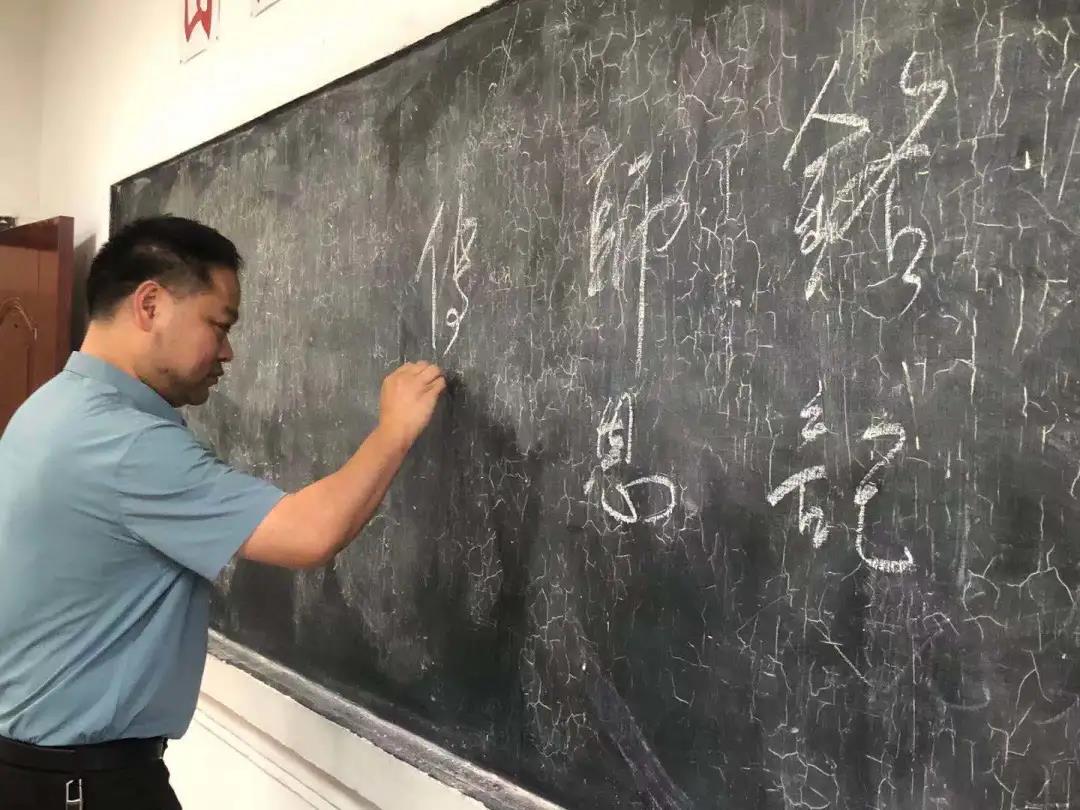 銘記
師恩
修